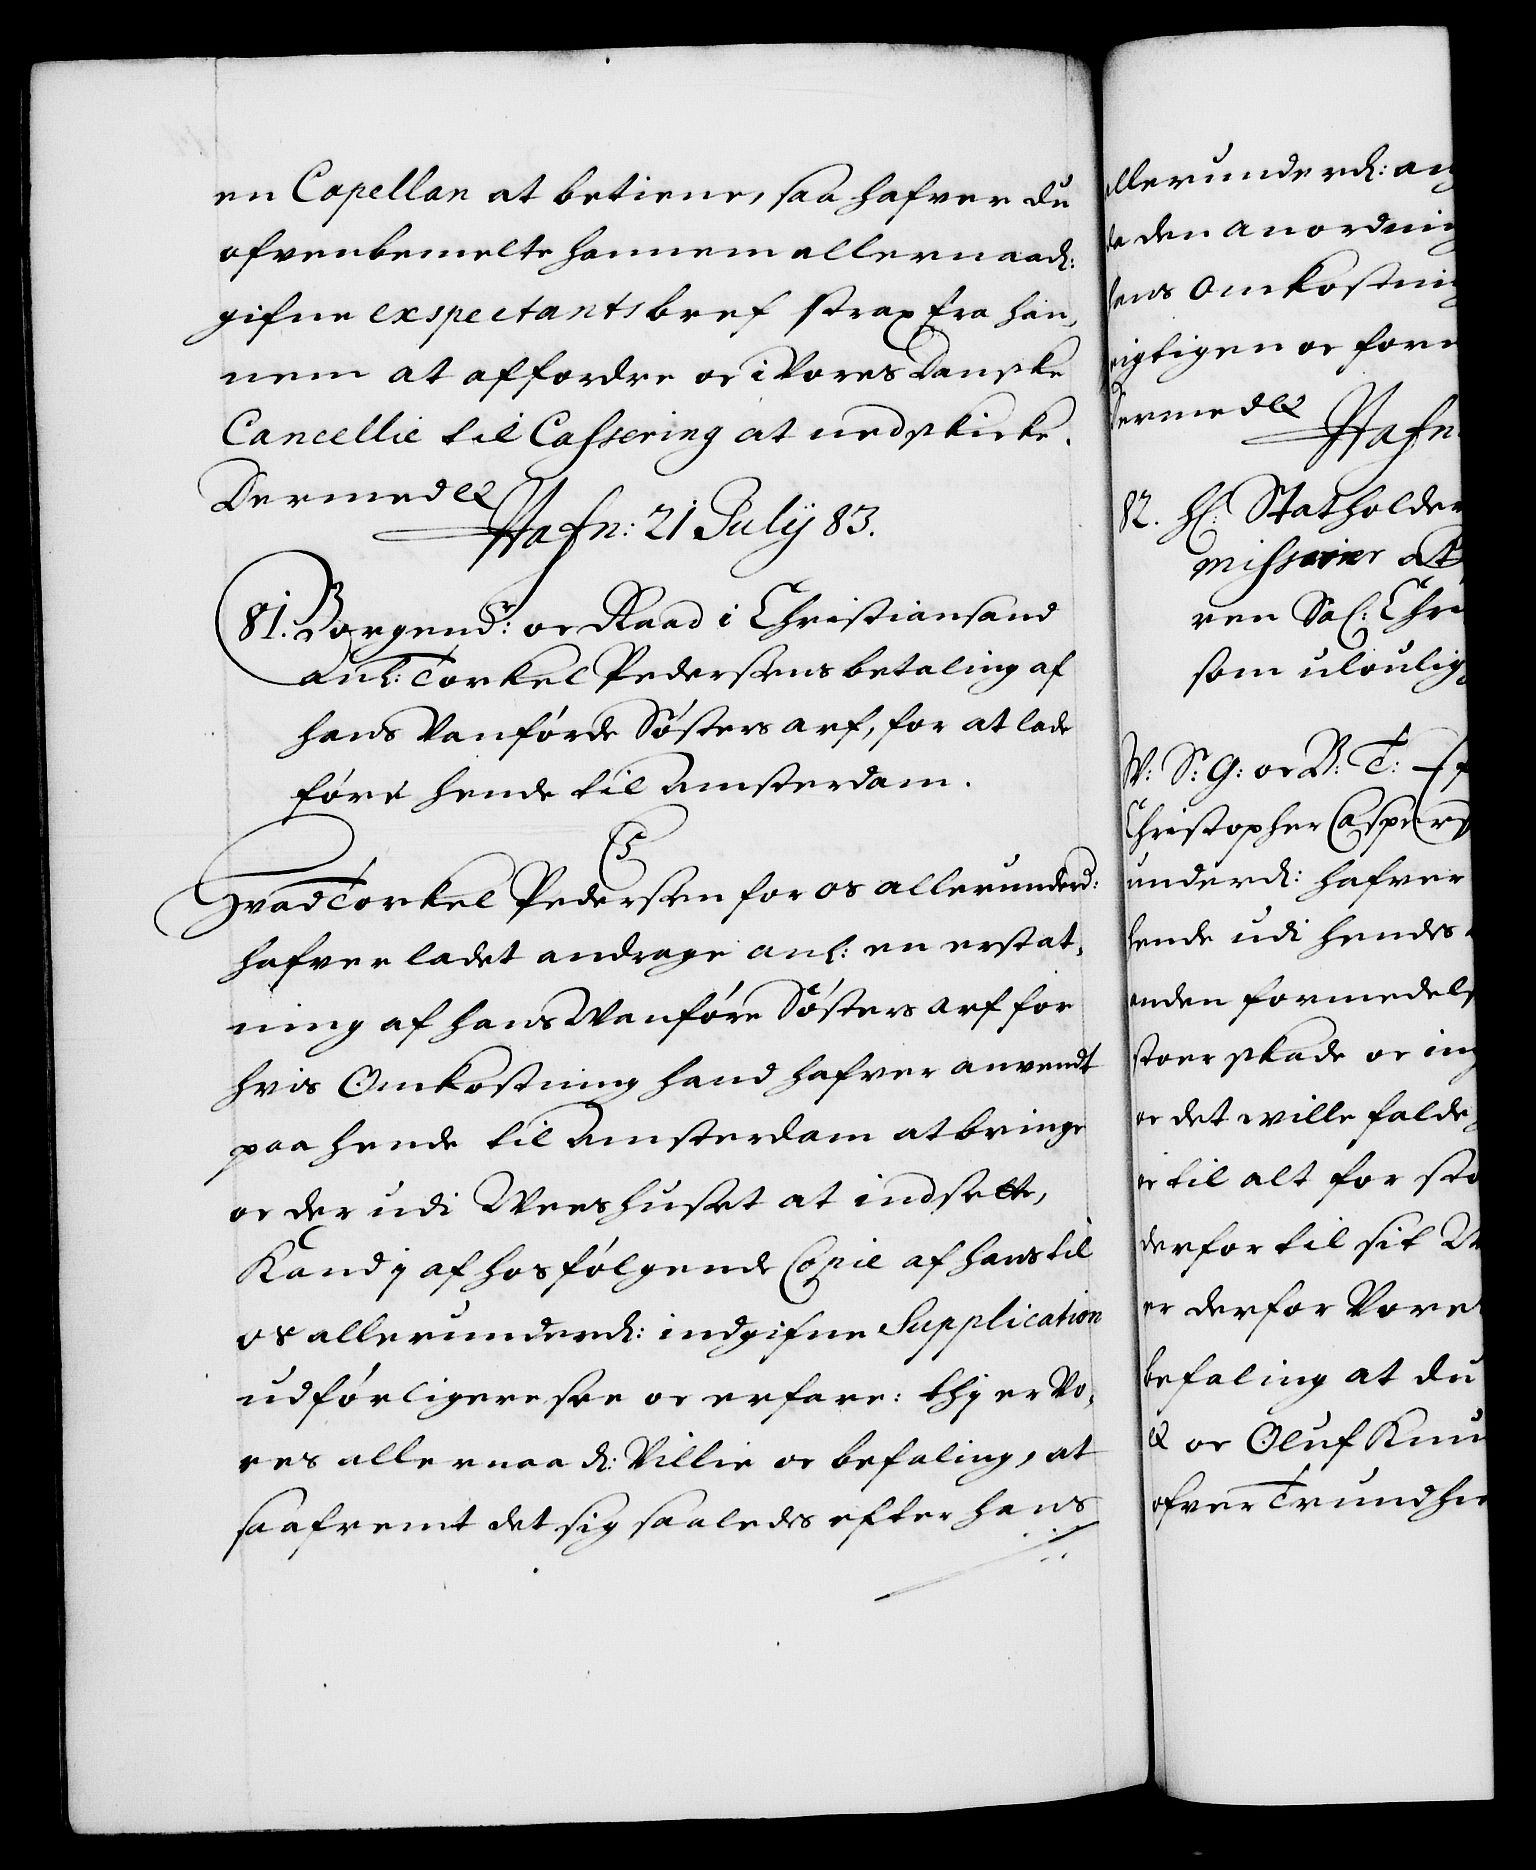 en Capellan at betiene, saa hafver du
ofvenbemelte hannem allernaad:
gifne exspectantsbref strax fra han,
nem at affordre oc i Vores Danske
Cancellie til Cassering at nedskicke.
Dermed &
Hafn: 21 July 83.
81. Borgem: oc Raad i Christiansand
anl: Torkel Pedersens betaling af
hans Vanförde Sösters arf, for at lade
före hende til Amsterdam.
C5
Hvad Torkel Pedersen for os allerunderd:
hafver ladet andrage anl: en erstat,
ning af hans Wanföre Sösters arf for
hvis Omkostning hand hafver anvendt
paa hende til Amsterdam at bringe
oc der udi Weeshuset at indsette,
Kand j af hosfölgende Copie af hans til
os allerunderd: indgifne Supplication
udförligere see oc erfare: thj er Vo,
res allernaad: Villie oc befaling, at
saafremt det sig saaledes efter hans
allerunderd: an
den anordning
hens Omkostning
rigtigen oc fore
Dermed &
Hafn
82. Hr: Statholder
missarier at
ren Sal: Chri
som ulovlig
W: S: G: oc B: T:
Christopher Caspers
underd: hafver
hende udi hendes
anden formedels
stoer skade oc ing
oc det wille falde
til alt for sto
derfor til sit
er derfor Vores
befaling at du
& oc Oluf Knu
ofver Trundhie